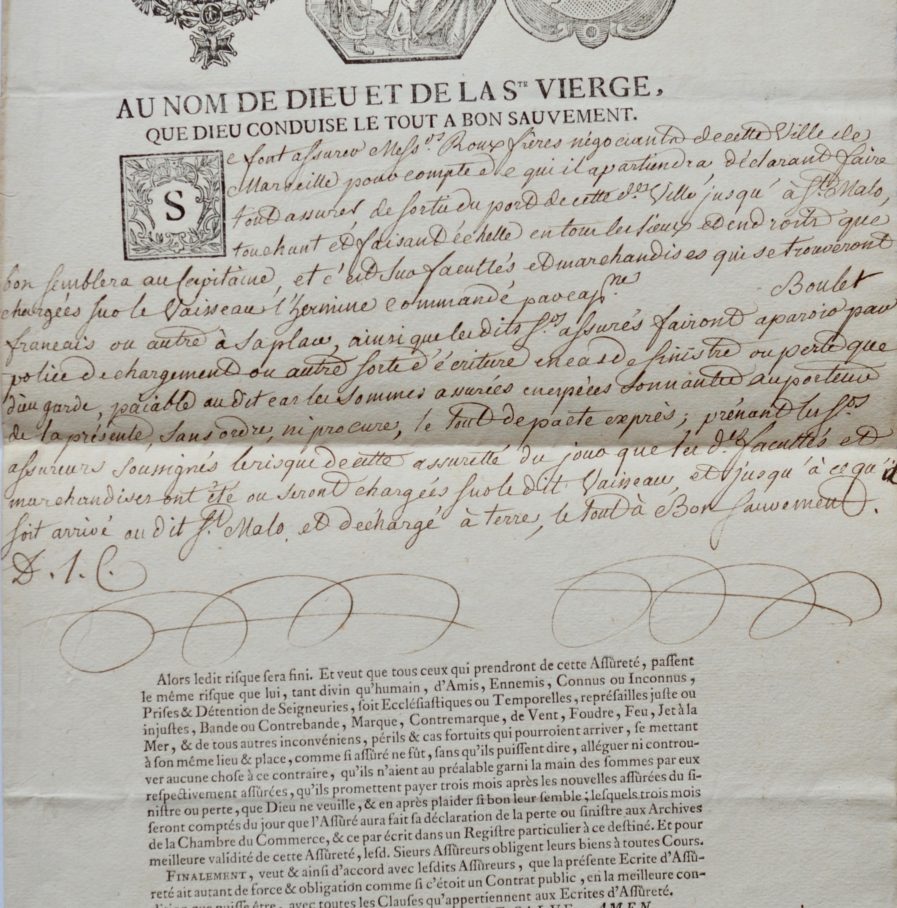 AU NOM DE DIEU ET DE LA Sᵀᴱ VIERGE,
QUE DIEU CONDUISE LE TOUT A BON SAUVEMENT.
Se font assurer Mess.rs Roux freres négociants de cette Ville de
Marseille pour compte de qui il apartiendra déclarant faire
tout assurer de sortie du port de cette de. Ville jusqu'à St. Malo,
touchant et faisant échelle en tous les lieux et endroits que
bon semblera au Capitaine, et c'est sur facultés et marchandises qui se trouveront
chargées sur le Vaisseau l'hermine commandé par cap.ne Boulet
francais ou autre à sa place, ainsi que les dits Srs. assurés fairont aparoir par
police de chargement ou autre sorte d'écriture en cas de sinistre ou perte que
dieu garde, païable au dit cas les sommes assurées en espéces sonnantes au porteur
de la présente, sans ordre, ni procure, le tout de pacte exprès; prénant les Srs.
assureurs soussignés le risque de cette assuretté du jour que les d.es facultés et
marchandises ont été ou seront chargées sur le dit Vaisseau, et jusqu'à ce qu'il
soit arrivé au dit St. Malo, et déchargé à terre, le tout à Bon Sauvement.
D. I. C.
Alors ledit risque sera fini. Et veut que tous ceux qui prendront de cette Assûreté, passent
le même risque que lui, tant divin qu'humain, d'Amis, Ennemis, Connus ou Inconnus,
Prises & Détention de Seigneuries, soit Ecclésiastiques ou Temporelles, représailles juste ou
injustes, Bande ou Contrebande, Marque, Contremarque, de Vent, Foudre, Feu, Jet à la
Mer, & de tous autres inconvéniens, périls & cas fortuits qui pourroient arriver, se mettant
à son même lieu & place, comme si assûré ne fût, sans qu'ils puissent dire, alléguer ni controu-
ver aucune chose à ce contraire, qu'ils n'aient au préalable garni la main des sommes par eux
respectivement assûrées, qu'ils promettent payer trois mois après les nouvelles assûrées du si-
nistre ou perte, que Dieu ne veuille, & en après plaider si bon leur semble; lesquels trois mois
seront comptés du jour que l'Assûré aura fait sa déclaration de la perte ou sinistre aux Archives
de la Chambre du Commerce, & ce par écrit dans un Registre particulier à ce destiné. Et pour
meilleure validité de cette Assûreté, lesd. Sieurs Assûreurs obligent leurs biens à toutes Cours.
FINALEMENT, veut & ainsi d'accord avec lesdits Assûreurs, que la présente Ecrite d'Assû-
reté ait autant de force & obligation comme si c'étoit un Contrat public, en la meilleure con-
dition que puisse être, avec toutes les Clauses qu'appertiennent aux Ecrites d'Assûreté.
SALVE. AMEN